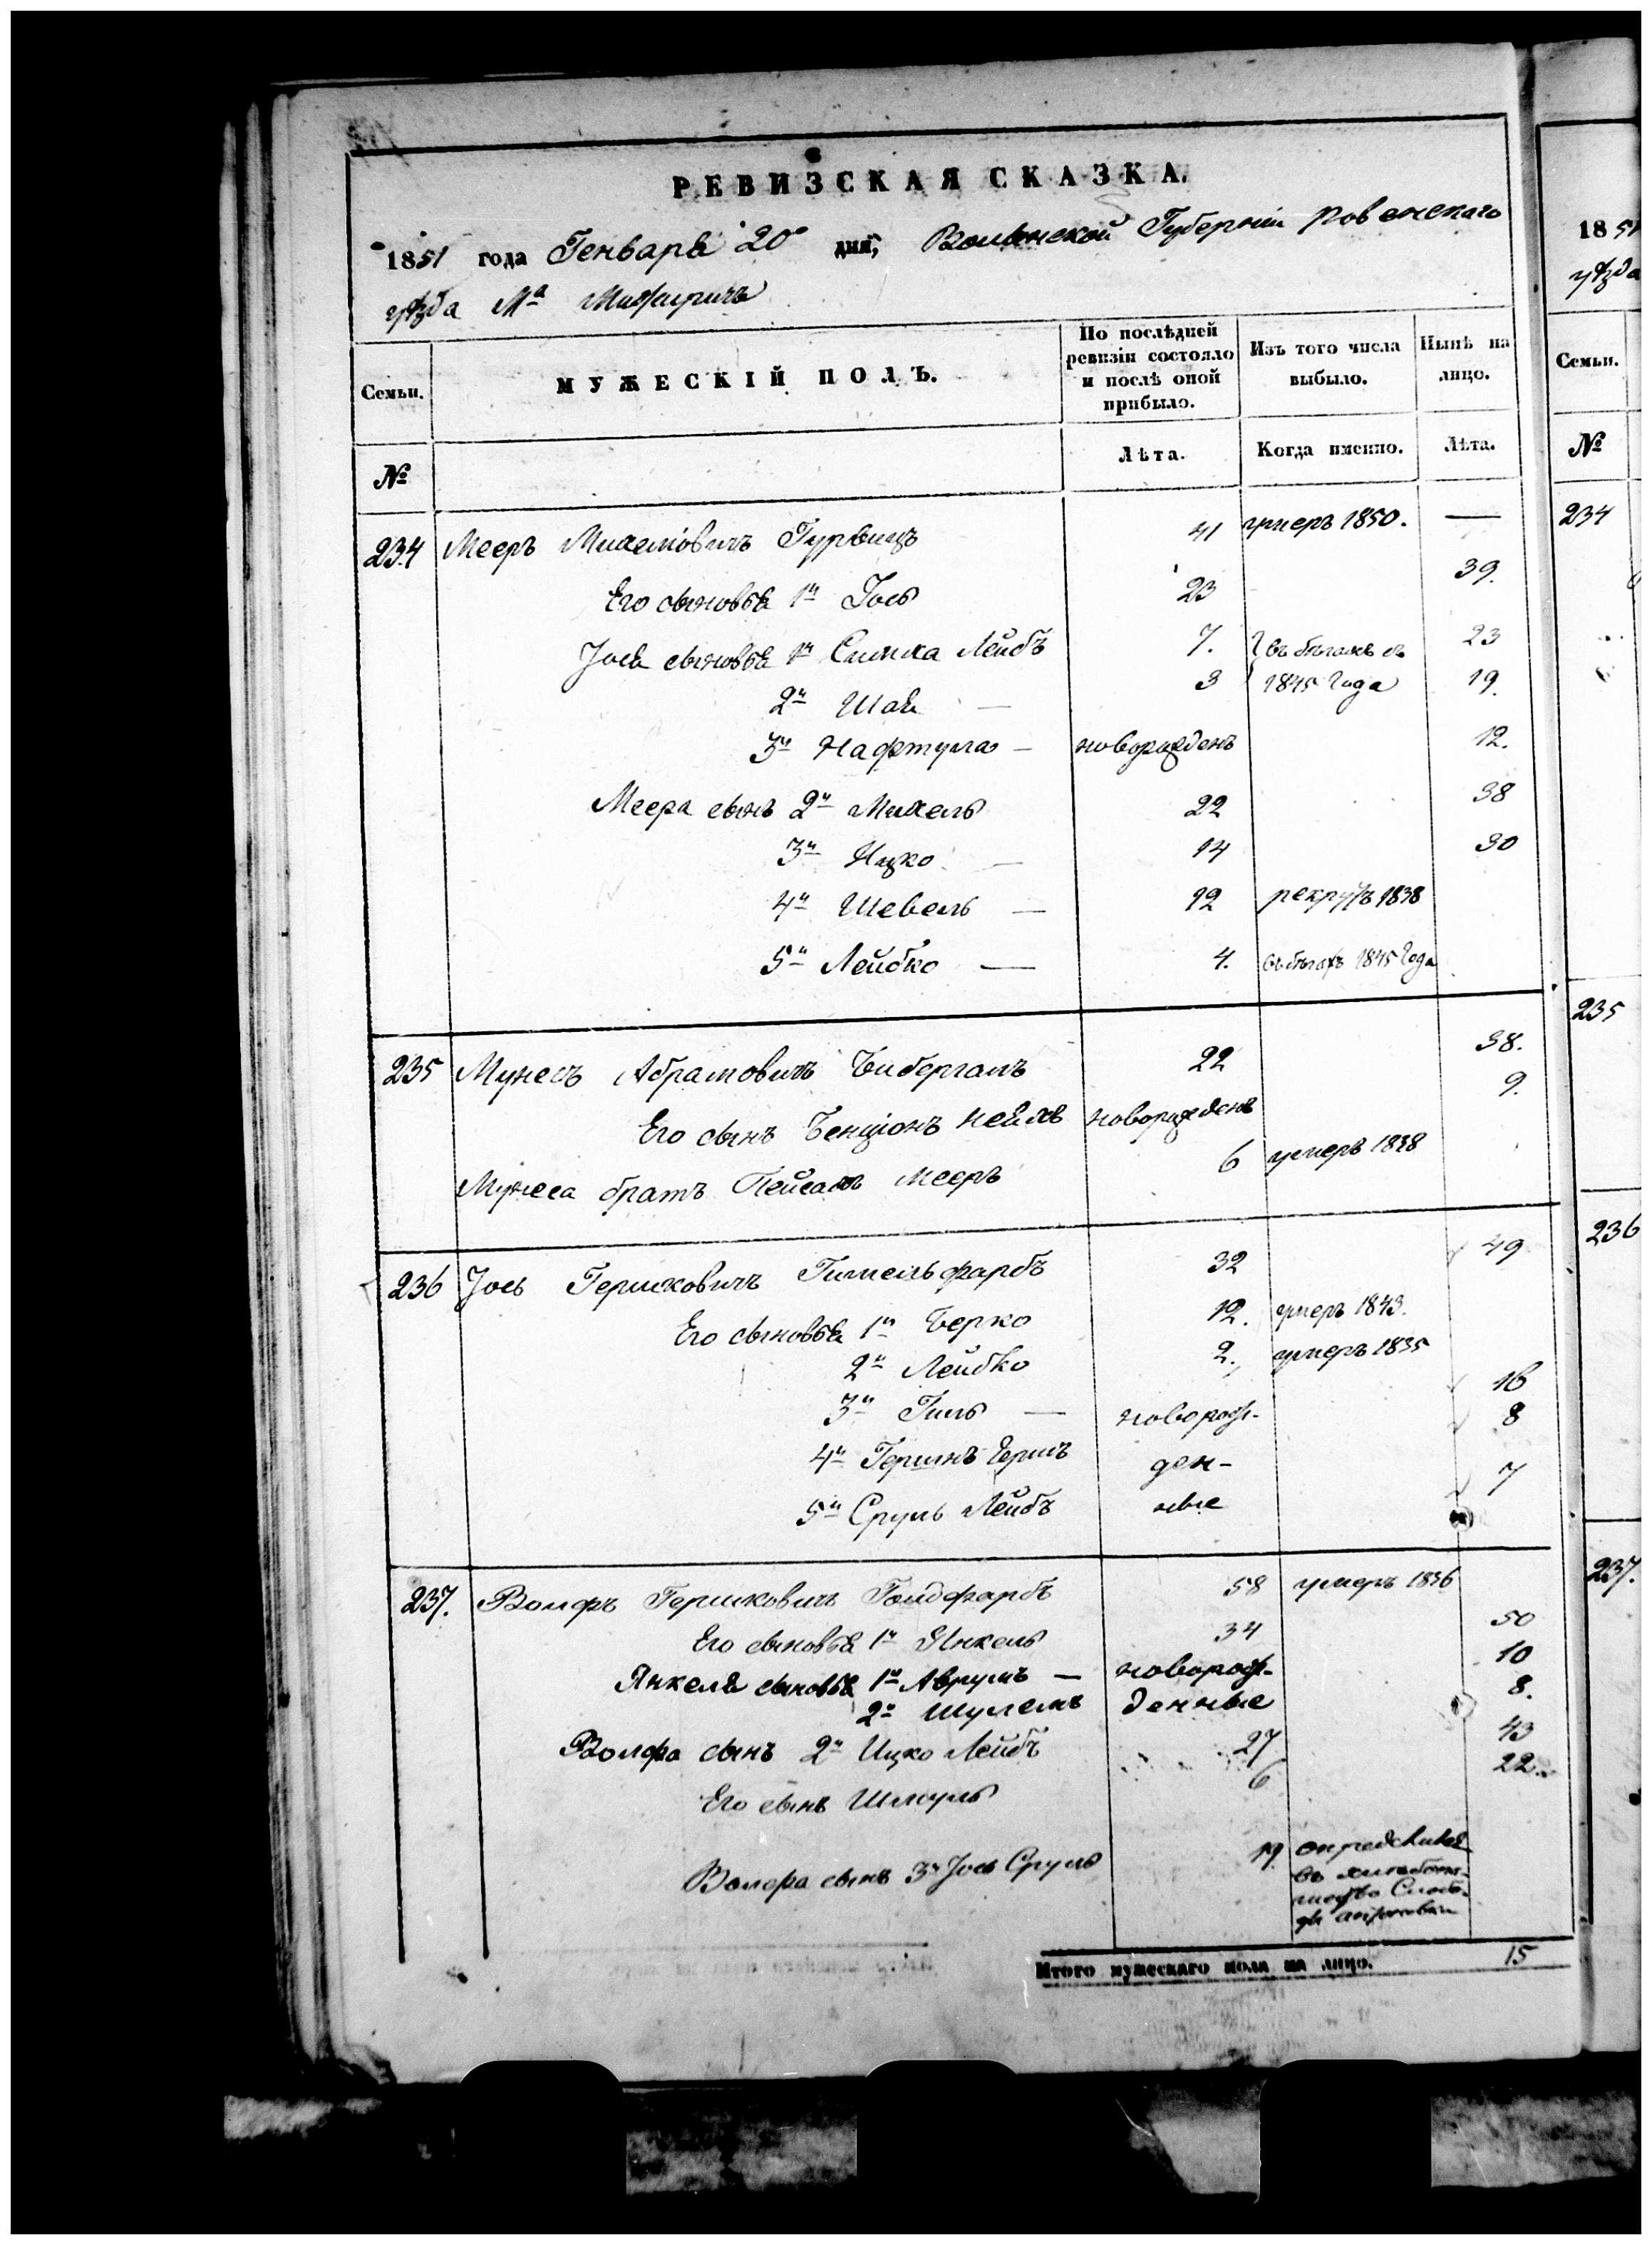 РЕВИЗСКАЯ СКАЗКА.
1851 года Генваря 20 дня, Волынской Губерніи Ровенскаго
уѣзда Мª Межирича
Семьи. МУЖЕСКІЙ ПОЛЪ. По послѣдней ревизіи состояло и послѣ оной прибыло. Изъ того числа выбыло. Нынѣ на лицо.
№ Лѣта. Когда именно. Лѣта.
234 Мееръ Михелiовичъ Гурвицъ 41 умеръ 1850. —
Его сыновья 1й Іось 23 39.
Іося сыновья 1й Симха Лейбъ 7. въ бѣгахъ съ 23
2й Шая — 3 1845 Года 19.
3й Нафтула — новорожденъ 12.
Меера сынъ 2й Михель 22 38
3й Ицко — 14 30
4й Шевель — 12 рекрутъ 1838
5й Лейбко — 4. въ бѣгахъ 1845 Года
235 Мунесъ Абрамовичъ Бибергалъ 22 38.
Его сынъ Бенціонъ новорожденъ 9.
Мунеса братъ Пейсахъ Мееръ 6 умеръ 1838
236 Іось Гершковичъ Гимельфарбъ 32 49
Его сыновья 1й Берко 12. умеръ 1843.
2й Лейбко 2. умеръ 1835
3й Гиль — новорож- 16
4й Гершнъ Гершъ ден- 8
5й Сруль Лейбъ ные 7
237. Волфъ Гершковичъ Голдфарбъ 58 умеръ 1836
Его сыновья 1й Янкель 34 50
Янкеля сыновья 1й Аврумъ — новорож- 10
2й Шулемъ денные 8.
Волфа сынъ 2й Ицко Лейбъ 27 43
Его сынъ Шмуль 6 22.
Волфа сынъ 3й Іось Сруль 19
въ
Итого мужескаго пола на лицо. 15
1851
уѣзда
Семьи.
№
234
235
236
237.